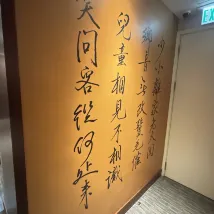 少小離家老大回
鄉音無改鬢毛催
兒童相見不相識
笑問客從何処来